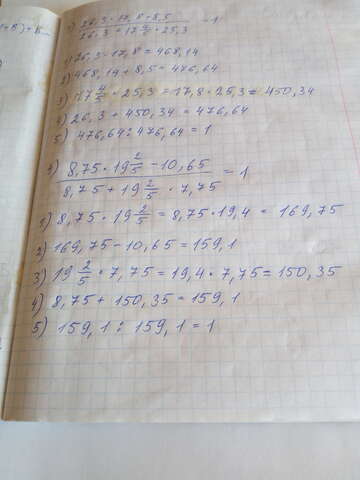 26,3 · 17,8 + 8,5
26,3 + 17 4/5 · 25,3
= 1
1) 26,3 · 17,8 = 468,14
2) 468,14 + 8,5 = 476,64
3) 17 4/5 · 25,3 = 17,8 · 25,3 = 450,34
4) 26,3 + 450,34 = 476,64
5) 476,64 : 476,64 = 1
8,75 · 19 2/5 - 10,65
8,75 + 19 2/5 · 7,75
= 1
1) 8,75 · 19 2/5 = 8,75 · 19,4 = 169,75
2) 169,75 - 10,65 = 159,1
3) 19 2/5 · 7,75 = 19,4 · 7,75 = 150,35
4) 8,75 + 150,35 = 159,1
5) 159,1 : 159,1 = 1